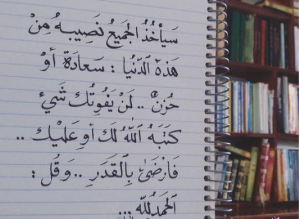 سَيَأْخُذُ الجَمِيعُ نَصِيبهُ مِنْ
هَذِهِ الدُّنْيَا : سَعادَة أوْ
حُزنْ .. لَنْ يَفُوتُكَ شَيْءٌ
كَتَبَهُ اللَّهُ لَكَ أوْ عَلَيْك ..
فَارْضَىٰ بِالْقَدَرِ .. وَقُل :
الحَمدُ لِلَّهِ ...